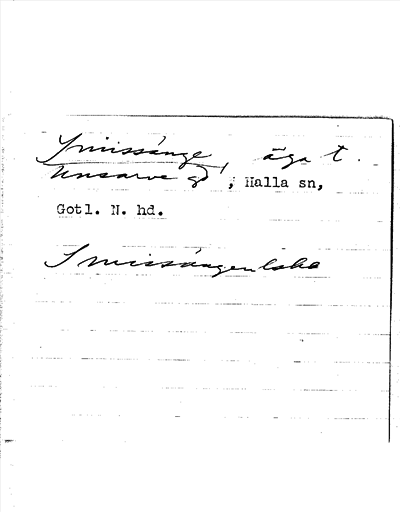 Smissänge, äga t.
Unsarve gd, Halla sn,
Gotl. N. hd.
Smissängen